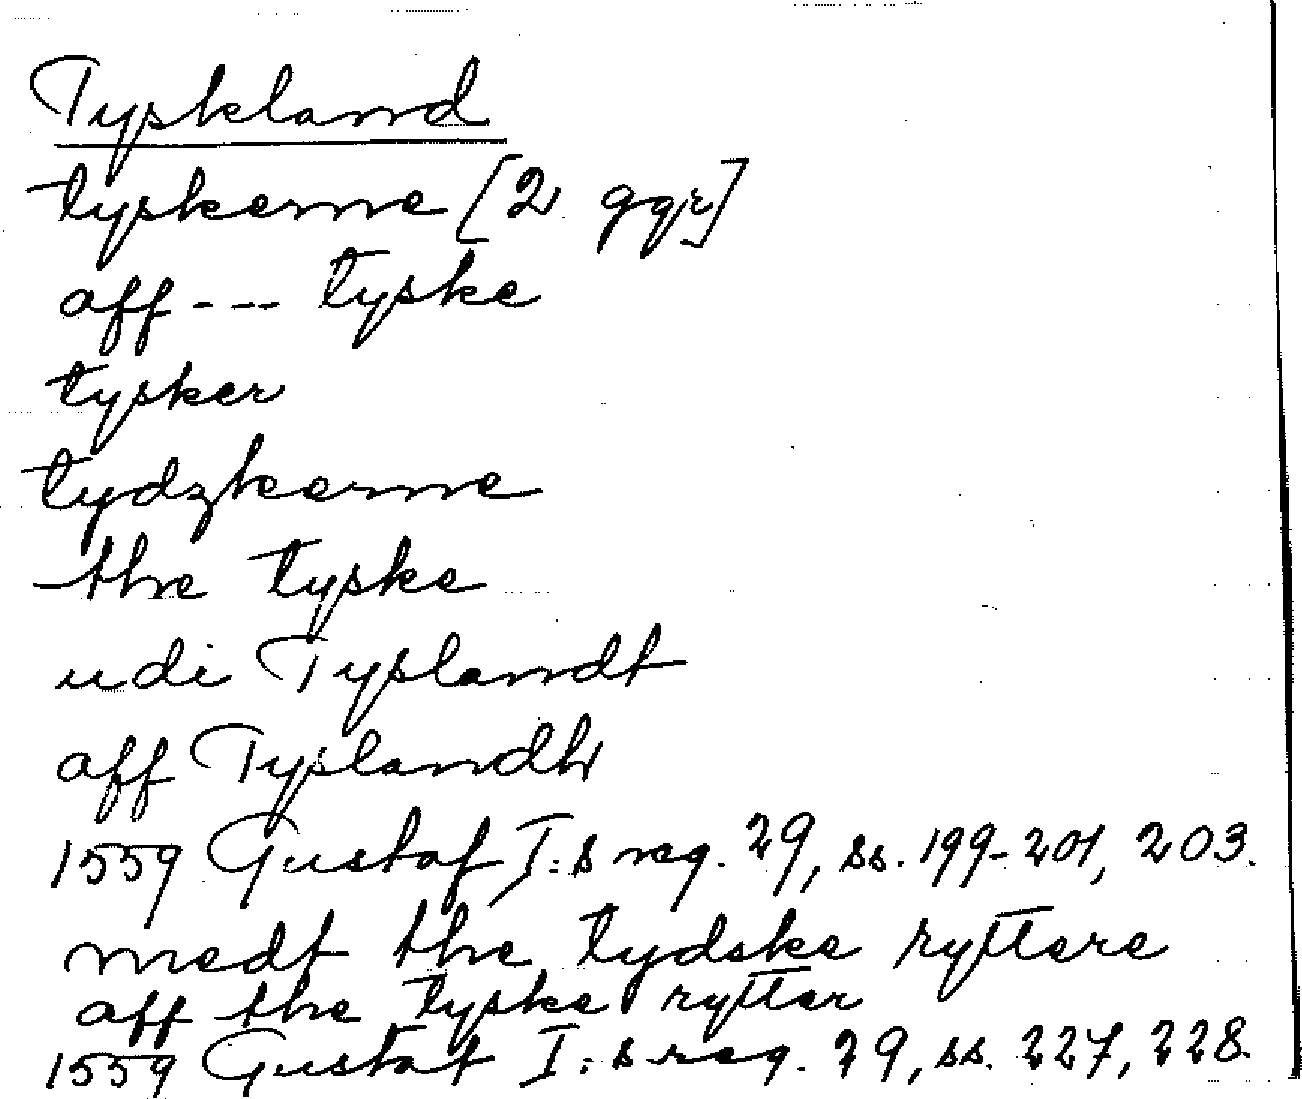 Tyskland
tyskerne [2 ggr]
aff --- tyske
tysker
tydzkerne
the tyske
udi Tyslandt
aff Tyslandh
1559 Gustaf I:s reg. 29, ss. 199-201, 203.
medt the tydske ryttere
aff the tyske rytter
1559 Gustaf I:s reg. 29, ss. 227, 228.